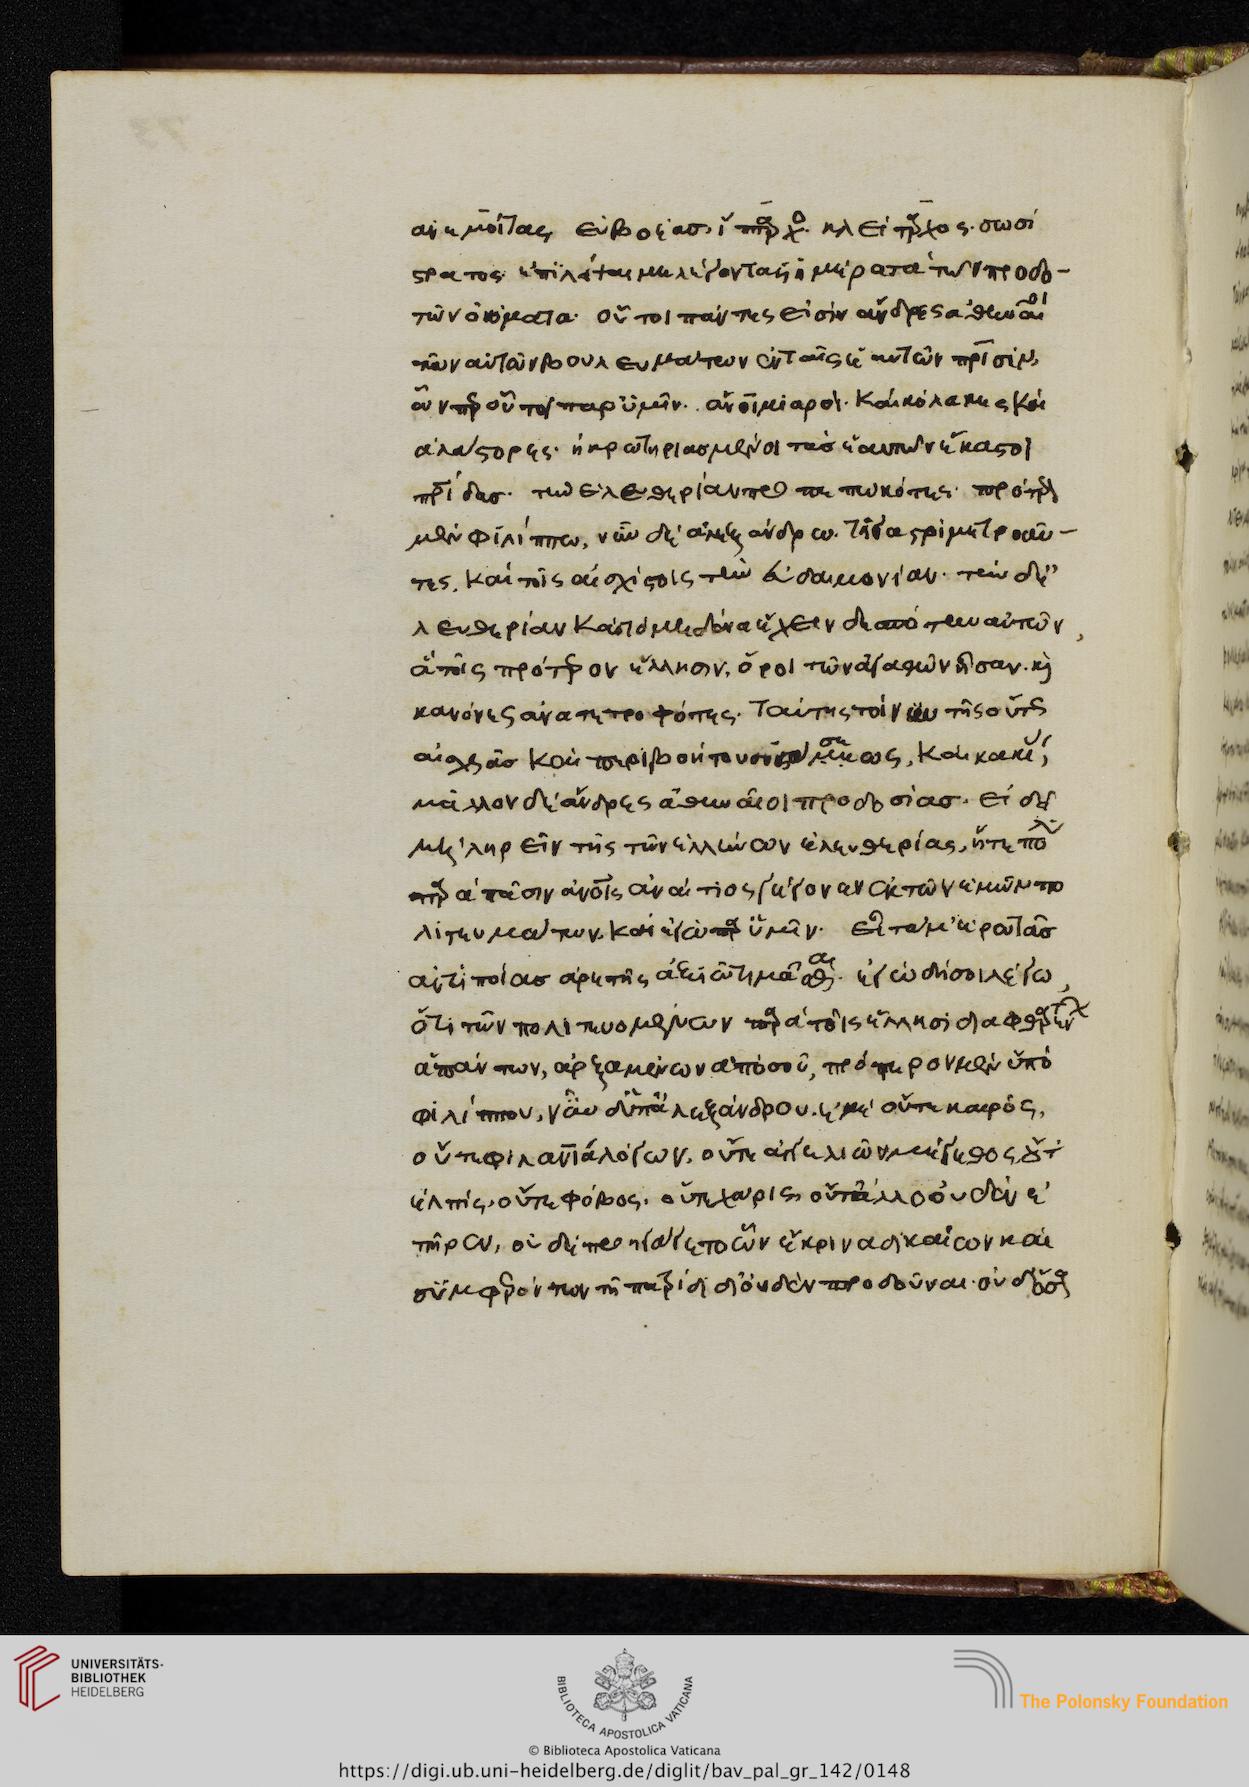 ανεμοίτας εὐβοέας, ἵππαρχος. κλείταρχος. σωσί
στρατος. ἐπιλείψει με λέγοντα ἡ ἡμέρα τὰ τῶν προδο-
τῶν ὀνόματα. οὗτοι πάντες εἰσὶν ἄνδρες ἀθηναῖοι
τῶν αὐτῶν βουλευμάτων ἐν ταῖς ἑαυτῶν πατρίσιν,
ὧνπερ οὗτοι παρ' ὑμῖν. ἄνοι μιαροὶ. καὶ κόλακες καὶ
ἀλάστορες. ἠκρωτηριασμένοι τὰς ἑαυτῶν ἕκαστοι
πρίδας. τὴν ἐλευθερίαν προπεπωκότες. πρότερον
μὲν φιλίππω, νῦν δὲ ἀλεξάνδρω. τῇ γαστρὶ μετροῦν-
τες, καὶ τοῖς αἰσχίστοις τὴν εὐδαιμονίαν. τὴν δ' ἐ
λευθερίαν καὶ τὸ μηδένα ἔχειν δεσπότην αὑτῶν,
ἃ τοῖς πρότερον ἕλλησιν, ὅροι τῶν ἀγαθῶν ἦσαν. καὶ
κανόνες ἀνατετροφότες. ταύτης τοίνυν τῆς οὕτως
αἰσχρᾶς καὶ περιβοήτου συστάσεως, καὶ κακίας,
μᾶλλον δὲ ἄνδρες ἀθηναῖοι προδοσίας. εἰ δεῖ
μὴ ληρεῖν τῆς τῶν ἑλλήνων ἐλευθερίας, ἥτε πόλις
παρὰ πᾶσιν ἀνοις ἀναίτιος γέγονεν ἐκ τῶν ἐμῶν πο
λιτευμάτων. καὶ ἐγὼ παρ' ὑμῖν. εἶτά μ' ἐρωτᾶς
ἀντὶ ποίας ἀρετῆς ἀξιῶ τιμᾶσθαι. ἐγὼ δή σοι λέγω,
ὅτι τῶν πολιτευομένων παρὰ τοῖς ἕλλησι διαφθαρέντων
ἁπάντων, ἀρξαμένων ἀπὸ σοῦ, πρότερον μὲν ὑπὸ
φιλίππου, νῦν δ' ὑπ' ἀλεξάνδρου. ἐμὲ οὔτε καιρὸς,
οὔτε φιλανία λόγων, οὔτε ἀγγελιῶν μέγεθος οὔτ'
ἐλπὶς, οὔτε φόβος. οὔτε χάρις, οὔτ' ἄλλο οὐδὲν ἐ
πῆρεν, οὐδὲ προηγάγετο ὧν ἔκρινα δικαίων καὶ
συμφερόντων τῇ πατρίδι οὐδὲν προδοῦναι. οὐδ' ὅσα
UNIVERSITÄTS-
BIBLIOTHEK
HEIDELBERG
BIBLIOTECA APOSTOLICA VATICANA
The Polonsky Foundation
© Biblioteca Apostolica Vaticana
https://digi.ub.uni-heidelberg.de/diglit/bav_pal_gr_142/0148